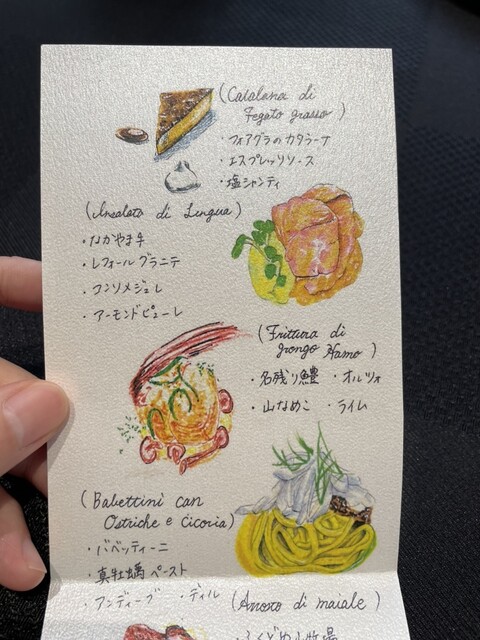 (Catalana di
Fegato grasso)
・フォアグラのカタラーナ
・エスプレッソソース
・塩シャンティ
(Insalata di Lingua)
・なかやま牛
・レフォールグラニテ
・コンソメジュレ
・アーモンドピューレ
(Frittura di
grongo Hamo)
・名残り鱧 ・オルツォ
・山なめこ ・ライム
(Babettini can
Ostriche e Cicoria)
・バベッティーニ
・真牡蠣ペースト
・アンディーブ ・ディル
(Arrosto di maiale)